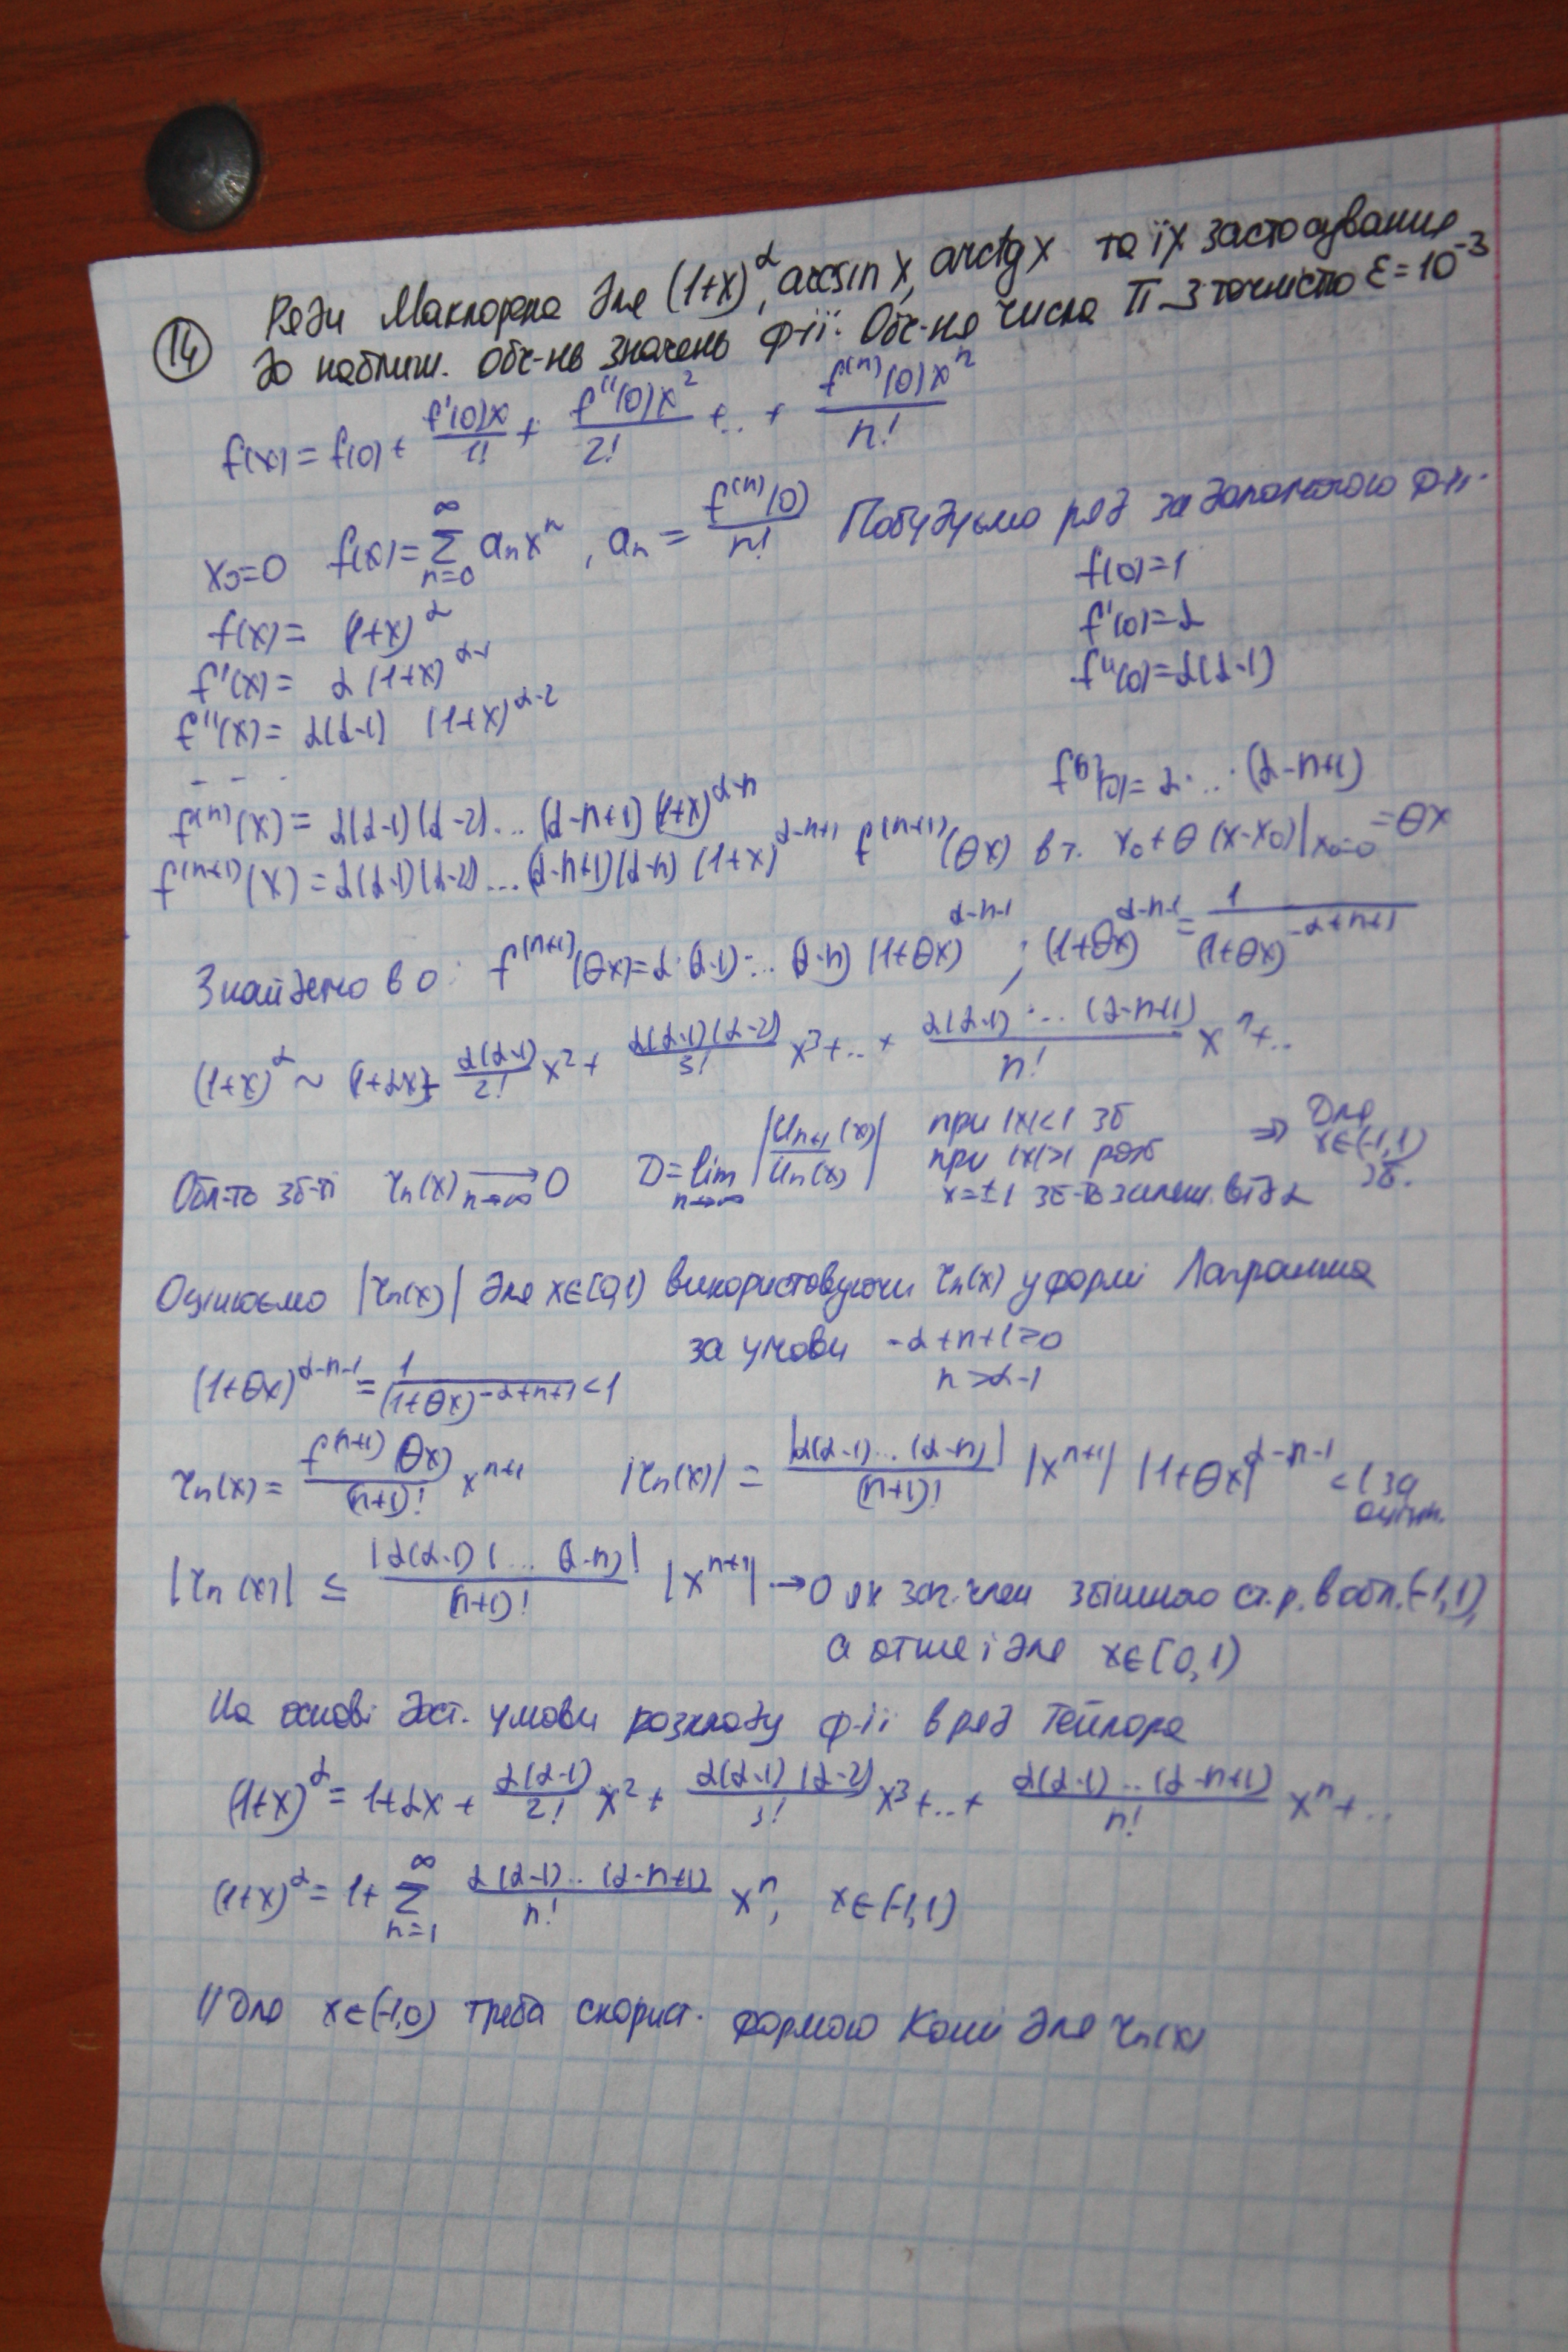 14 Ряди Маклорена для (1+x)^α, arcsin x, arctg x та їх застосування
до наближ. обч-нь значень ф-ії. Обч-ня числа π з точністю ε=10^-3
f(x) = f(0) + f'(0)x/1! + f''(0)x^2/2! + ... + f^(n)(0)x^n/n!
x₀=0 f(x)=∑_{n=0}^∞ a_n x^n, a_n = f^(n)(0)/n! Побудуємо ряд за допомогою ф-ії.
f(x) = (1+x)^α f(0)=1
f'(x) = α(1+x)^α-1 f'(0)=α
f''(x) = α(α-1) (1+x)^α-2 f''(0)=α(α-1)
- - -
f^(n)(x) = α(α-1)(α-2)...(α-n+1)(1+x)^α-n f^(n)(0)=α·...·(α-n+1)
f^(n+1)(x) = α(α-1)(α-2)...(α-n+1)(α-n)(1+x)^α-n+1 f^(n+1)(θx) в т. x₀+θ(x-x₀)|x₀=0 =θx
Знайдемо в 0: f^(n+1)(θx)=α·(α-1)·...(α-n)(1+θx)^α-n-1; (1+θx)^α-n-1 = 1/(1+θx)^-α+n+1
(1+x)^α ~ 1+αx+ α(α-1)/2! x^2 + α(α-1)(α-2)/3! x^3+...+ α(α-1)·...(α-n+1)/n! x^n+..
Обл-ть зб-ті r_n(x) →_{n→∞} 0 D=lim_{n→∞} |u_{n+1}(x)/u_n(x)| при |x|<1 зб ⇒ Для
при |x|>1 розб x∈(-1,1)
x=±1 зб-ть залеж. від α зб.
Оцінюємо |r_n(x)| для x∈[0,1) використовуючи r_n(x) у формі Лагранжа
за умови -α+n+1≥0
(1+θx)^α-n-1 = 1/(1+θx)^-α+n+1 <1 n>α-1
r_n(x) = f^(n+1)(θx)/(n+1)! x^n+1 |r_n(x)| = |α(α-1)...(α-n)|/(n+1)! |x^n+1| |1+θx|^α-n-1 <1 за
оцінк.
|r_n(x)| ≤ |α(α-1)(...(α-n)|/(n+1)! |x^n+1| → 0 як заг. член збіжного ст. р. в обл. (-1,1),
а отже і для x∈[0,1)
На основі дост. умови розкладу ф-ії в ряд Тейлора
(1+x)^α = 1+αx + α(α-1)/2! x^2 + α(α-1)(α-2)/3! x^3 +..+ α(α-1)..(α-n+1)/n! x^n+..
(1+x)^α = 1+ ∑_{n=1}^∞ α(α-1)..(α-n+1)/n! x^n, x∈(-1,1)
// Для x∈(-1,0) треба скорист. формою Коші для r_n(x)